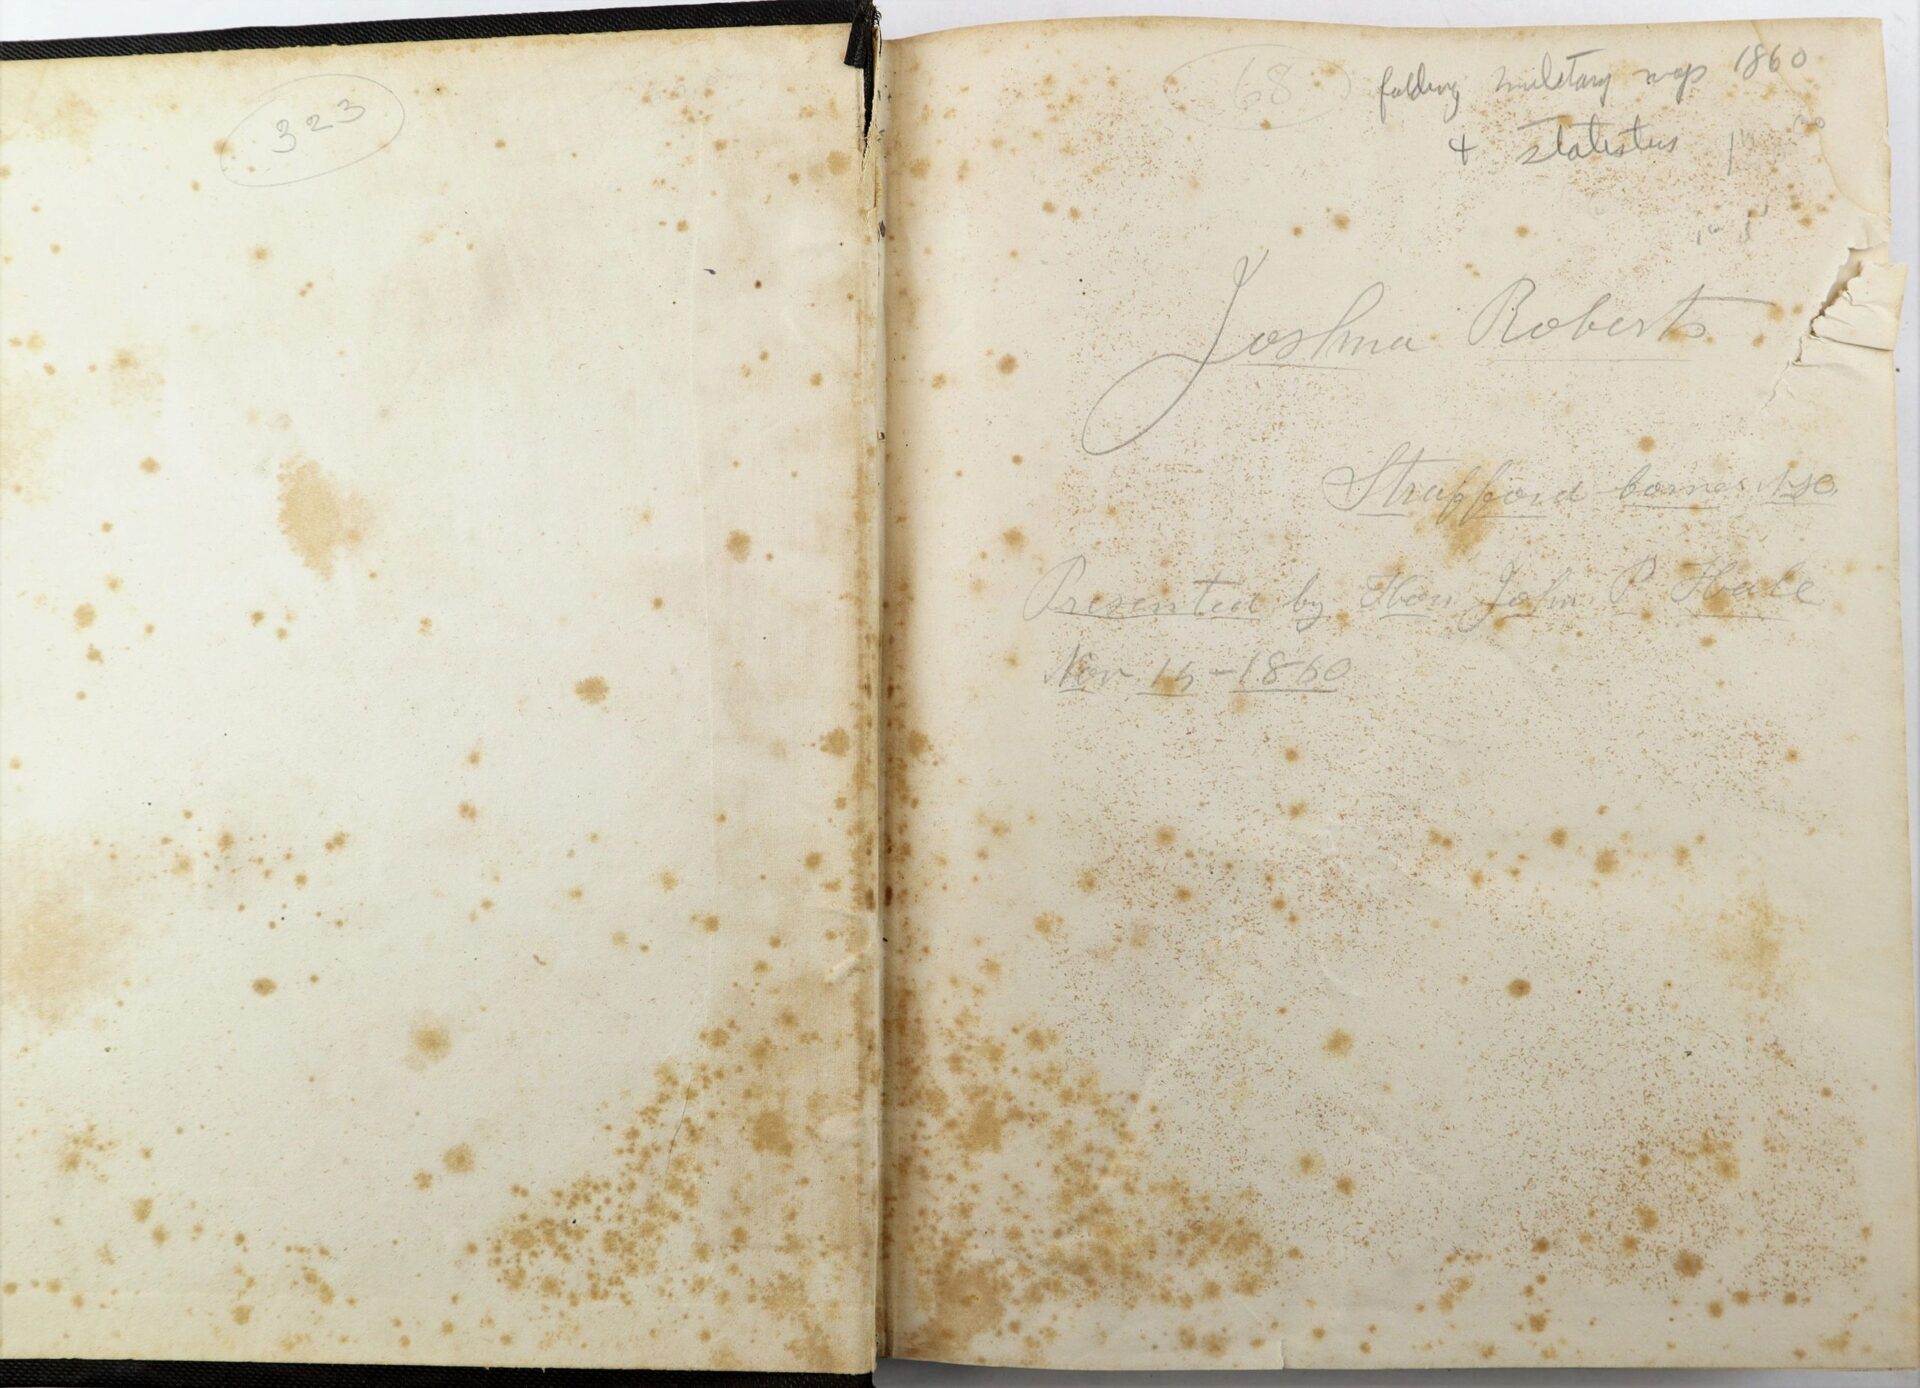 323
68
folding military map 1860
& statistics
Joshua Roberts
Strafford corner N.H.
Presented by Hon John P Hale
Nov 15-1860